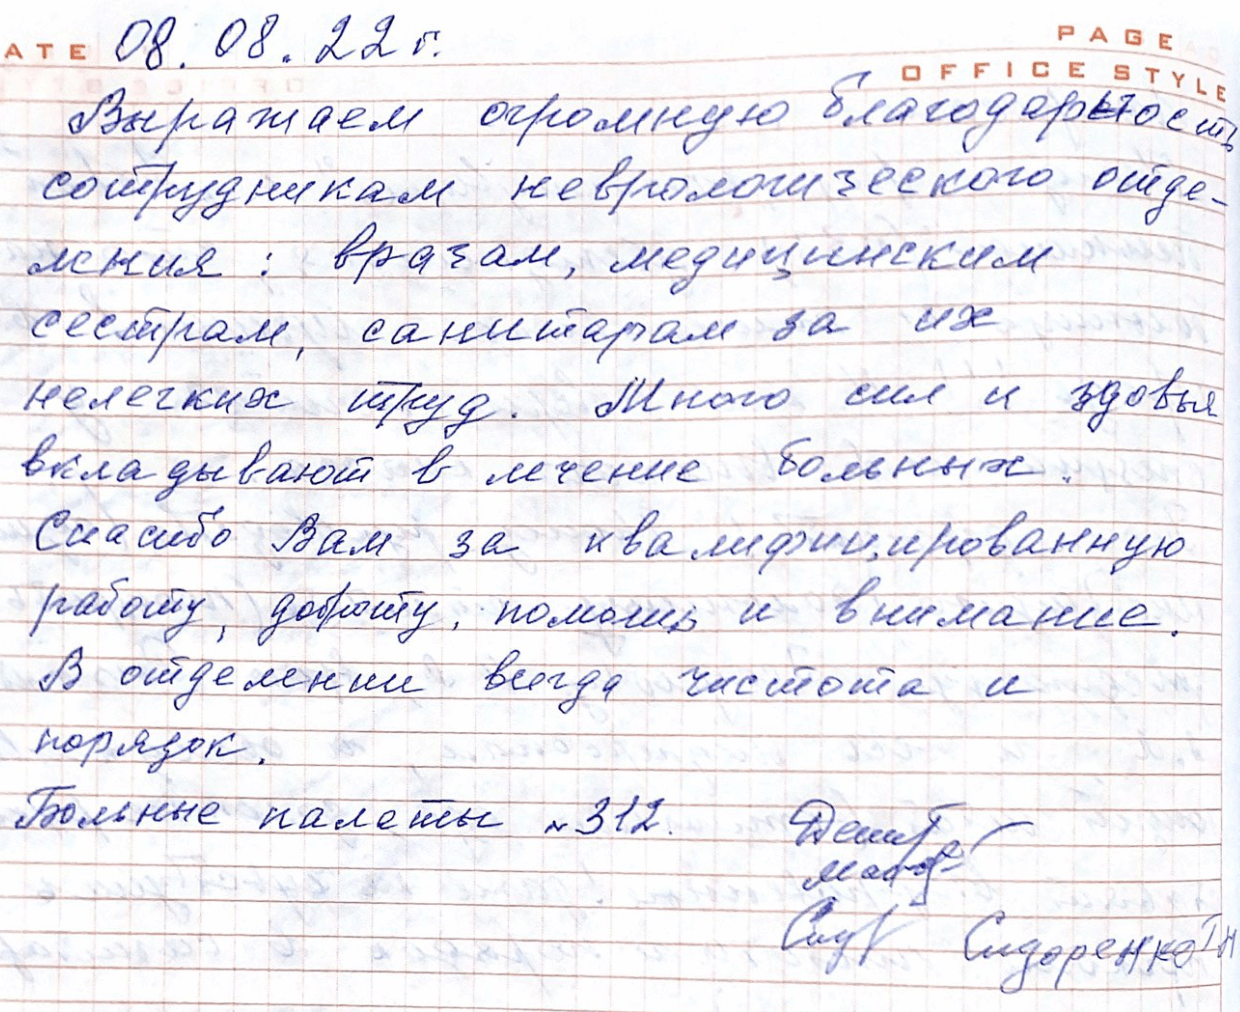 ATE 08.08.22 г.
PAGE
OFFICE STYLE
Выражаем огромную благодарность
сотрудникам неврологического отде-
ления: врачам, медицинским
сестрам, санитарам за их
нелегких труд. Много сил и здовья
вкладывают в лечение больных.
Спасибо Вам за квалифицированную
работу, доброту, помощь и внимание.
В отделении всегда чистота и
порядок.
Больные палаты №312.
Сидоренко ТН